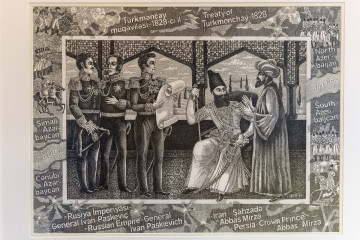 Türkmənçay
müqaviləsi -1828-ci il
Treaty of
Turkmenchay 1828
Şimali
Azər-
baycan
Cənubi
Azər-
baycan
North
Azer-
baijan
South
Azer-
baijan
-Rusiya İmperiyası-
General Ivan Paskeviç
-Russian Empire-General
Ivan Paskievich
-İran Şahzadə
Abbas Mirzə
Persia-Crown Prince
Abbas Mirza